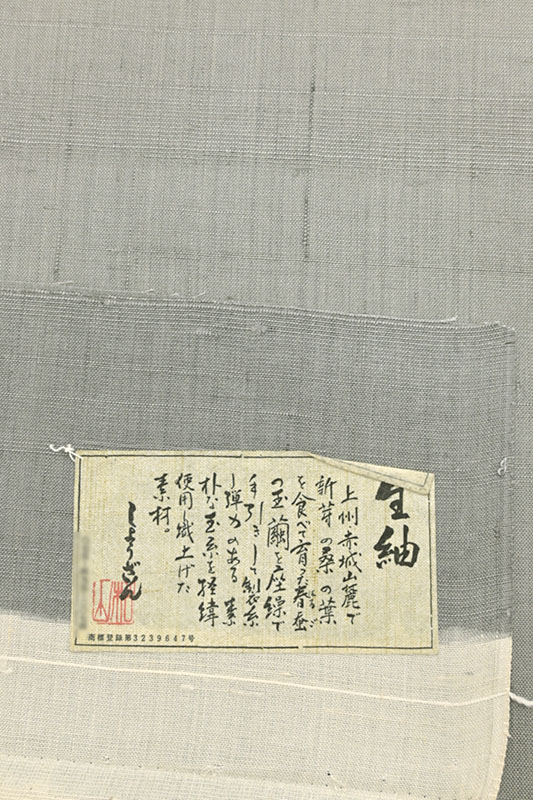 生紬
上州赤城山麓で
新芽の桑の葉
を食べて育った春蚕
はるご
の玉繭を座繰で
手引きして製糸
し弾力のある素
朴な玉糸を経緯
使用し織上げた
素材。
しょうざん
商標登録第3239647号